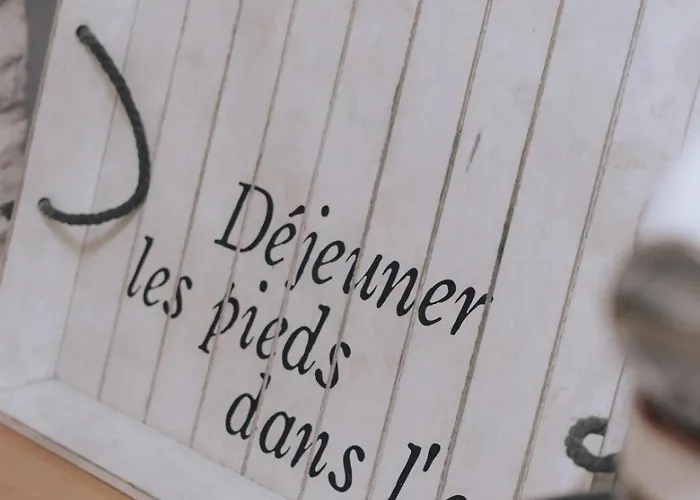 Déjeuner
les pieds
dans l'